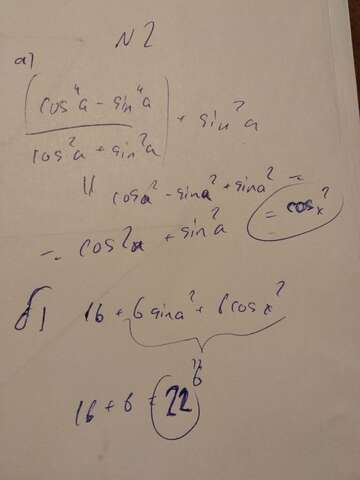 N 2
а)
(cos⁴a - sin⁴a / cos²a + sin²a) + sin²a
|| cosa² - sina² + sina² =
= cos2x + sin²a = cosx²
б) 16 + 6sina² + 6cosx²
"
6
16 + 6 = 22